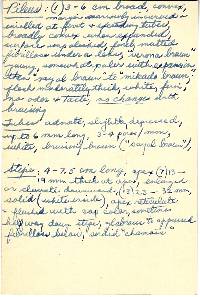 Pileus: (1) 3-6 cm broad, convex,
margin narrowly incurved &
at first, becoming
broadly convex when expanded,
surface dry, matted
fibrillose under a lens, "brown"
, somewhat paler with expansion,
then "sayal brown" to "mikado brown";
flesh moderately thick, white, firm,
no odor & taste, no change with
bruising
Tubes adnate, slightly depressed,
up to 6 mm long, 2-3 pores/mm,
white, bruising brown ("sayal brown").
Stipe: 4-7.5 cm long, apex (7) 13-
19 mm thick at apex, enlarged
or clavate downward, (13) 23-32 mm,
solid (white inside), apex reticulate
& flushed with cap color, sometimes
way down stipe, glabrous to appressed
fibrillose below, "chamois"